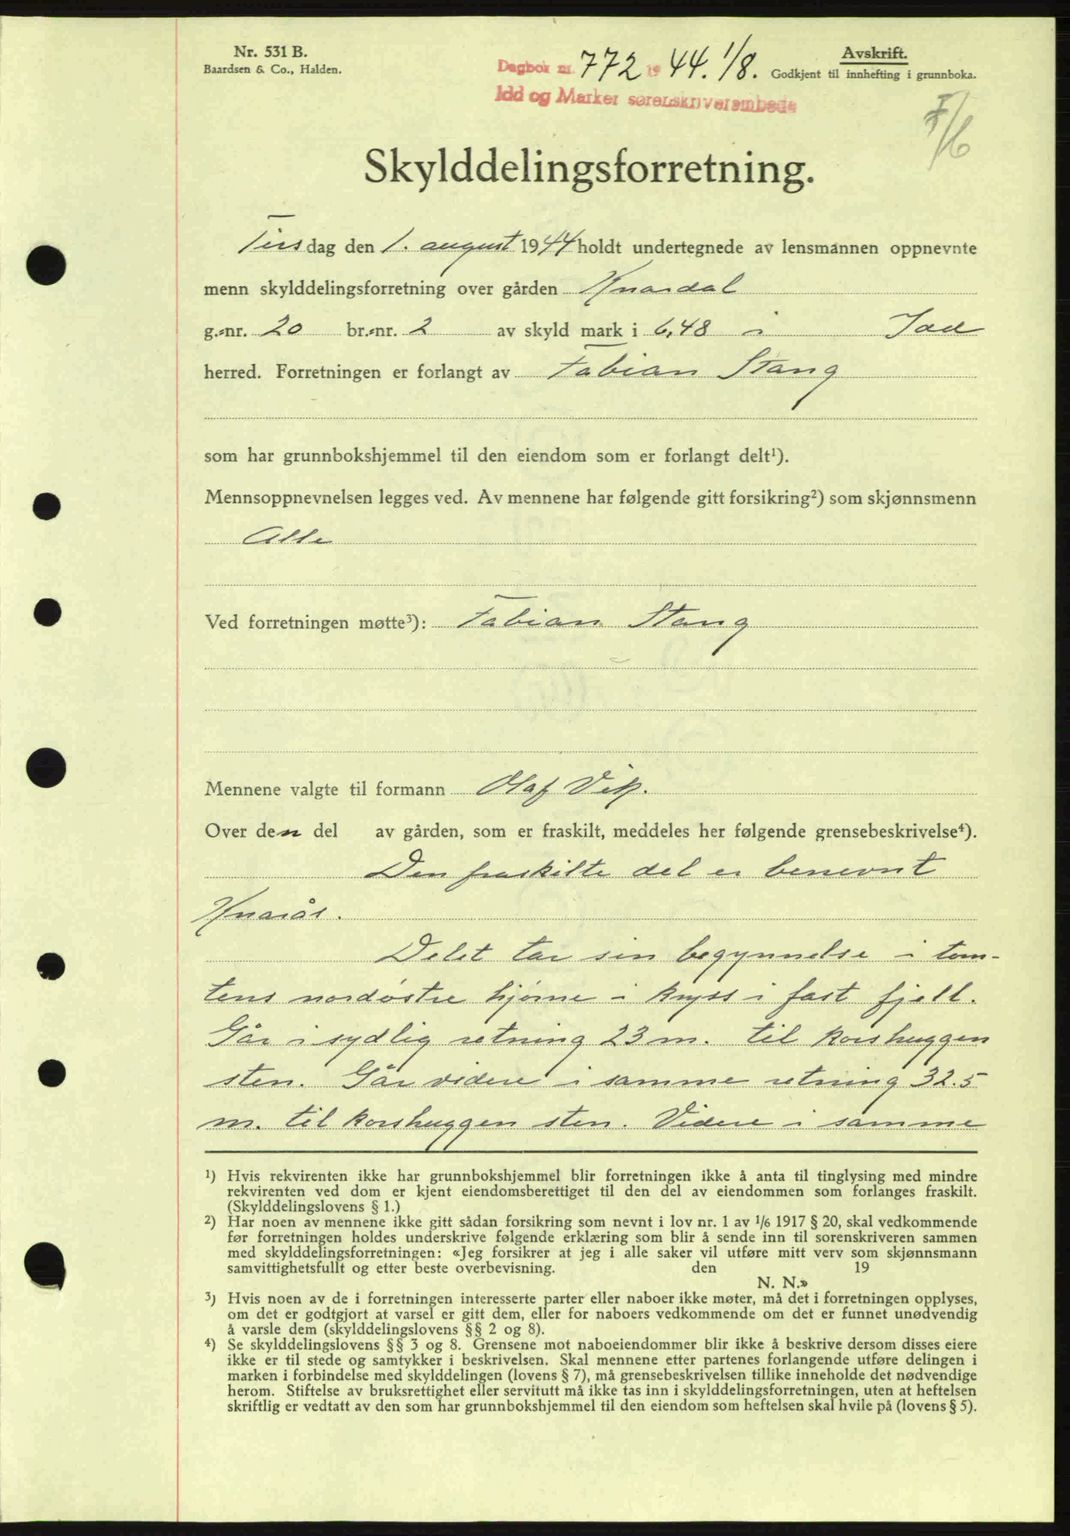 Nr. 531 B.
Baardsen & Co., Halden.
Dagbok nr. 772 1944. 1/8.
Idd og Marker sorenskriverembede
Avskrift.
Godkjent til innhefting i grunnboka.
Skylddelingsforretning.
Tirsdag den 1. august 1944 holdt undertegnede av lensmannen oppnevnte
menn skylddelingsforretning over gården Knardal
g.-nr. 20 br.-nr. 2 av skyld mark i 6,48 i Idd
herred. Forretningen er forlangt av Fabian Stang
som har grunnbokshjemmel til den eiendom som er forlangt delt¹).
Mennsoppnevnelsen legges ved. Av mennene har følgende gitt forsikring²) som skjønnsmenn
Alle
Ved forretningen møtte³): Fabian Stang
Mennene valgte til formann Olaf Vik.
Over den del av gården, som er fraskilt, meddeles her følgende grensebeskrivelse⁴).
Den fraskilte del er benevnt
Knarås.
Delet tar sin begynnelse i tom-
tens nordøstre hjørne i kryss i fast fjell.
Går i sydlig retning 23 m. til korshuggen
sten. Går videre i samme retning 32.5
m. til korshuggen sten. Videre i samme
¹) Hvis rekvirenten ikke har grunnbokshjemmel blir forretningen ikke å anta til tinglysing med mindre
rekvirenten ved dom er kjent eiendomsberettiget til den del av eiendommen som forlanges fraskilt.
(Skylddelingslovens § 1.)
²) Har noen av mennene ikke gitt sådan forsikring som nevnt i lov nr. 1 av 1/6 1917 § 20, skal vedkommende
før forretningen holdes underskrive følgende erklæring som blir å sende inn til sorenskriveren sammen
med skylddelingsforretningen: «Jeg forsikrer at jeg i alle saker vil utføre mitt verv som skjønnsmann
samvittighetsfullt og etter beste overbevisning. den 19
N. N.»
³) Hvis noen av de i forretningen interesserte parter eller naboer ikke møter, må det i forretningen opplyses,
om det er godtgjort at varsel er gitt dem, eller for naboers vedkommende om det er funnet unødvendig
å varsle dem (skylddelingslovens §§ 2 og 8).
⁴) Se skylddelingslovens §§ 3 og 8. Grensene mot naboeiendommer blir ikke å beskrive dersom disses eiere
ikke er til stede og samtykker i beskrivelsen. Skal mennene etter partenes forlangende utføre delingen i
marken i forbindelse med skylddelingen (lovens § 7), må grensebeskrivelsen tillike inneholde det nødvendige
herom. Stiftelse av bruksrettighet eller servitutt må ikke tas inn i skylddelingsforretningen, uten at heftelsen
skriftlig er vedtatt av den som har grunnbokshjemmel til den eiendom som heftelsen skal hvile på (lovens § 5).